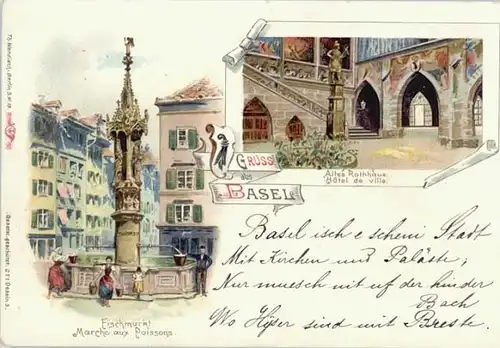 GRUSS
aus
BASEL
Altes Rathhaus
Hôtel de ville.
Fischmarkt
Marché aux Poissons
Basel isch e scheni Stadt
Mit Kirchen und Paläste;
Nur muesch nit uf der hinder
Bach
Wo Hyser sind mit Breste.